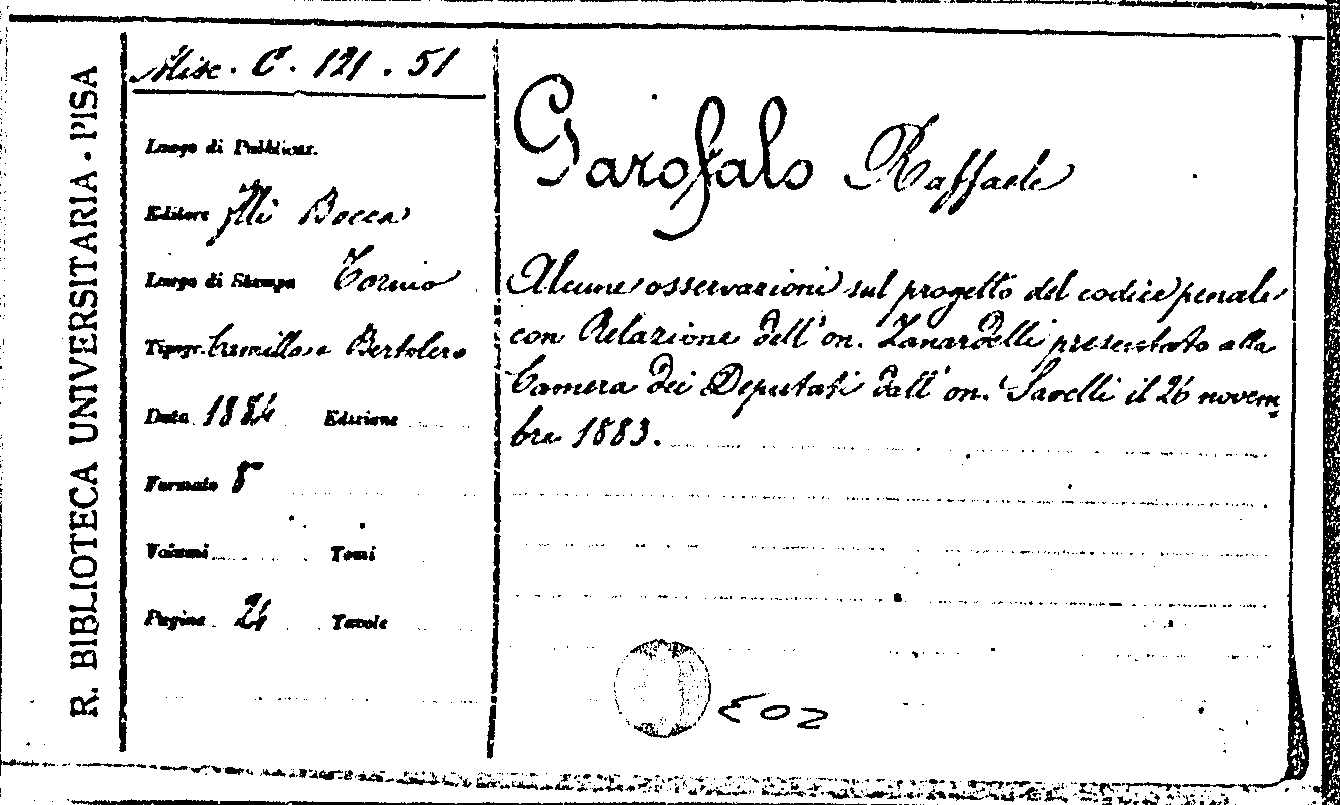 R. BIBLIOTECA UNIVERSITARIA - PISA
Misc. C. 121. 51
Luogo di Pubblicaz.
Editore flli Bocca
Luogo di Stampa Torino
Tipogr. Camilla e Bertolero
Data 1884 Edizione
Formato 8
Volumi Tomi
Pagine 24 Tavole
Garofalo Raffaele
Alcune osservazioni sul progetto del codice penale
con Relazione dell'on. Zanardelli presentato alla
Camera dei Deputati dall'on. Savelli il 26 novem=
bre 1883.
E02